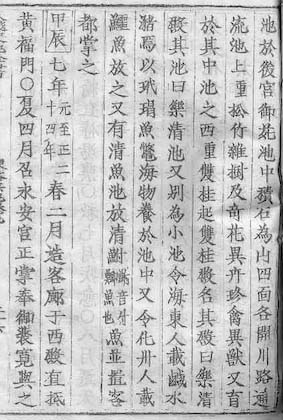 池於後宮御苑池中積石為山四面各開川路通
流池上重松竹雜樹及奇花異卉珍禽異獸又育
於其中池之西重雙桂起雙桂殿名其殿曰樂清
殿其池曰樂清池又別為小池令海東人載鹹水
瀦焉以玳瑁魚鱉海物養於池中又令化州人載
鱷魚放之又有清魚池放清鮒鮒音付鯽魚也魚並置客
都掌之
甲辰七年元至正二十四年春二月造客廊于西殿直抵
黃福門○夏四月召永安宮正掌奉御裴寬與之